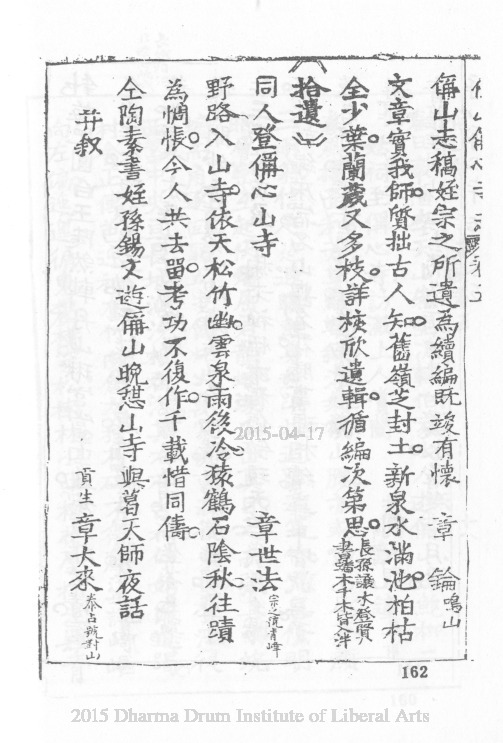 偁山志稿姪宗之所遺為續編既竣有懷 章 錀 鳴山
文章實我師質拙古人知舊嶺芝封土新泉水滿池柏枯
全少葉蘭歲又多枝詳校欣遺輯循編次第思
拾遺
同人登偁心山寺 章世法
野路入山寺依天松竹幽雲泉雨後冷猿鶴石陰秋往蹟
為惆悵今人共去留考功不復作千載惜同儔
仝陶素書姪孫錫文遊偁山晚憇山寺與葛天師夜話
并叙 貢生 章大來 泰占號對山
162
2015-04-17
2015 Dharma Drum Institute of Liberal Arts